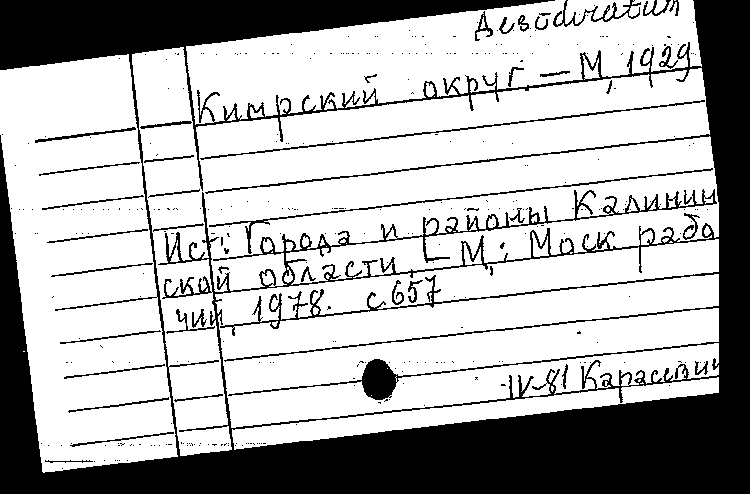 Desideratum
Кимрский округ. — М, 1929
Ист: Города и районы Калинин
ской области. — М,: Моск рабо
чий, 1978. с.657
IV-81 Карасевич